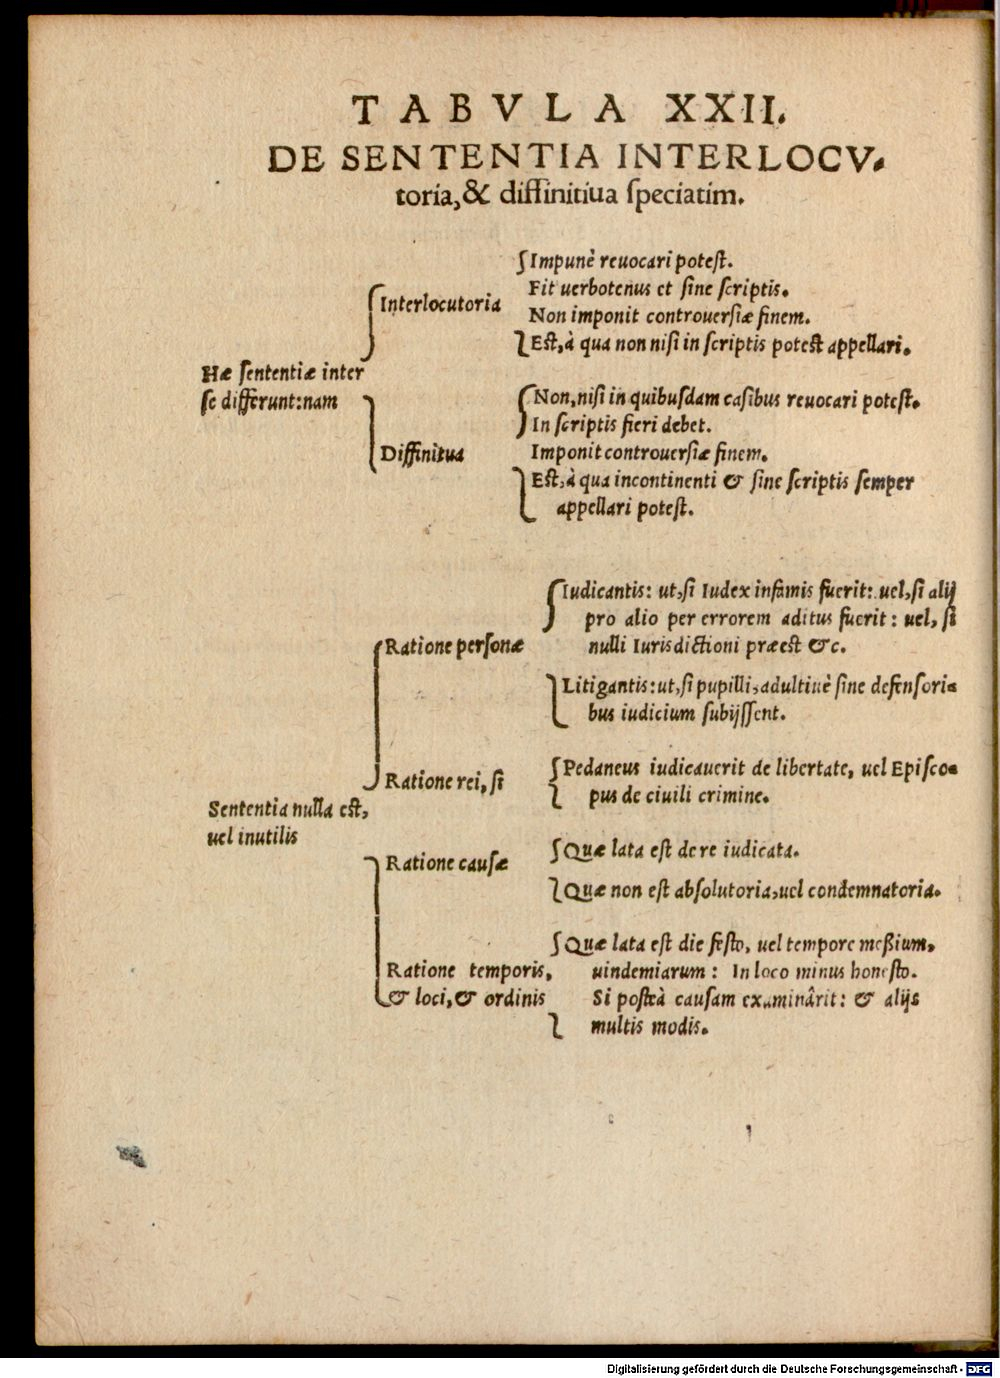 TABVLA XXII.
DE SENTENTIA INTERLOCV-
toria, & diffinitiua speciatim.
Hæ sententiæ inter
se differunt: nam
Interlocutoria
Impunè reuocari potest.
Fit uerbotenus et sine scriptis.
Non imponit controuersiæ finem.
Est, à qua non nisi in scriptis potest appellari.
Diffinitua
Non, nisi in quibusdam casibus reuocari potest.
In scriptis fieri debet.
Imponit controuersiæ finem.
Est, à qua incontinenti & sine scriptis semper
appellari potest.
Sententia nulla est,
uel inutilis
Ratione personæ
Iudicantis: ut, si Iudex infamis fuerit: uel, si alij
pro alio per errorem aditus fuerit: uel, si
nulli Iurisdictioni præest &c.
Litigantis: ut, si pupilli, adultiuè sine defensori-
bus iudicium subijssent.
Ratione rei, si
Pedaneus iudicauerit de libertate, uel Episco-
pus de ciuili crimine.
Ratione causæ
Quæ lata est de re iudicata.
Quæ non est absolutoria, uel condemnatoria.
Ratione temporis,
& loci, & ordinis
Quæ lata est die festo, uel tempore meßium,
uindemiarum: In loco minus honesto.
Si posteà causam examinârit: & alijs
multis modis.
Digitalisierung gefördert durch die Deutsche Forschungsgemeinschaft - DFG